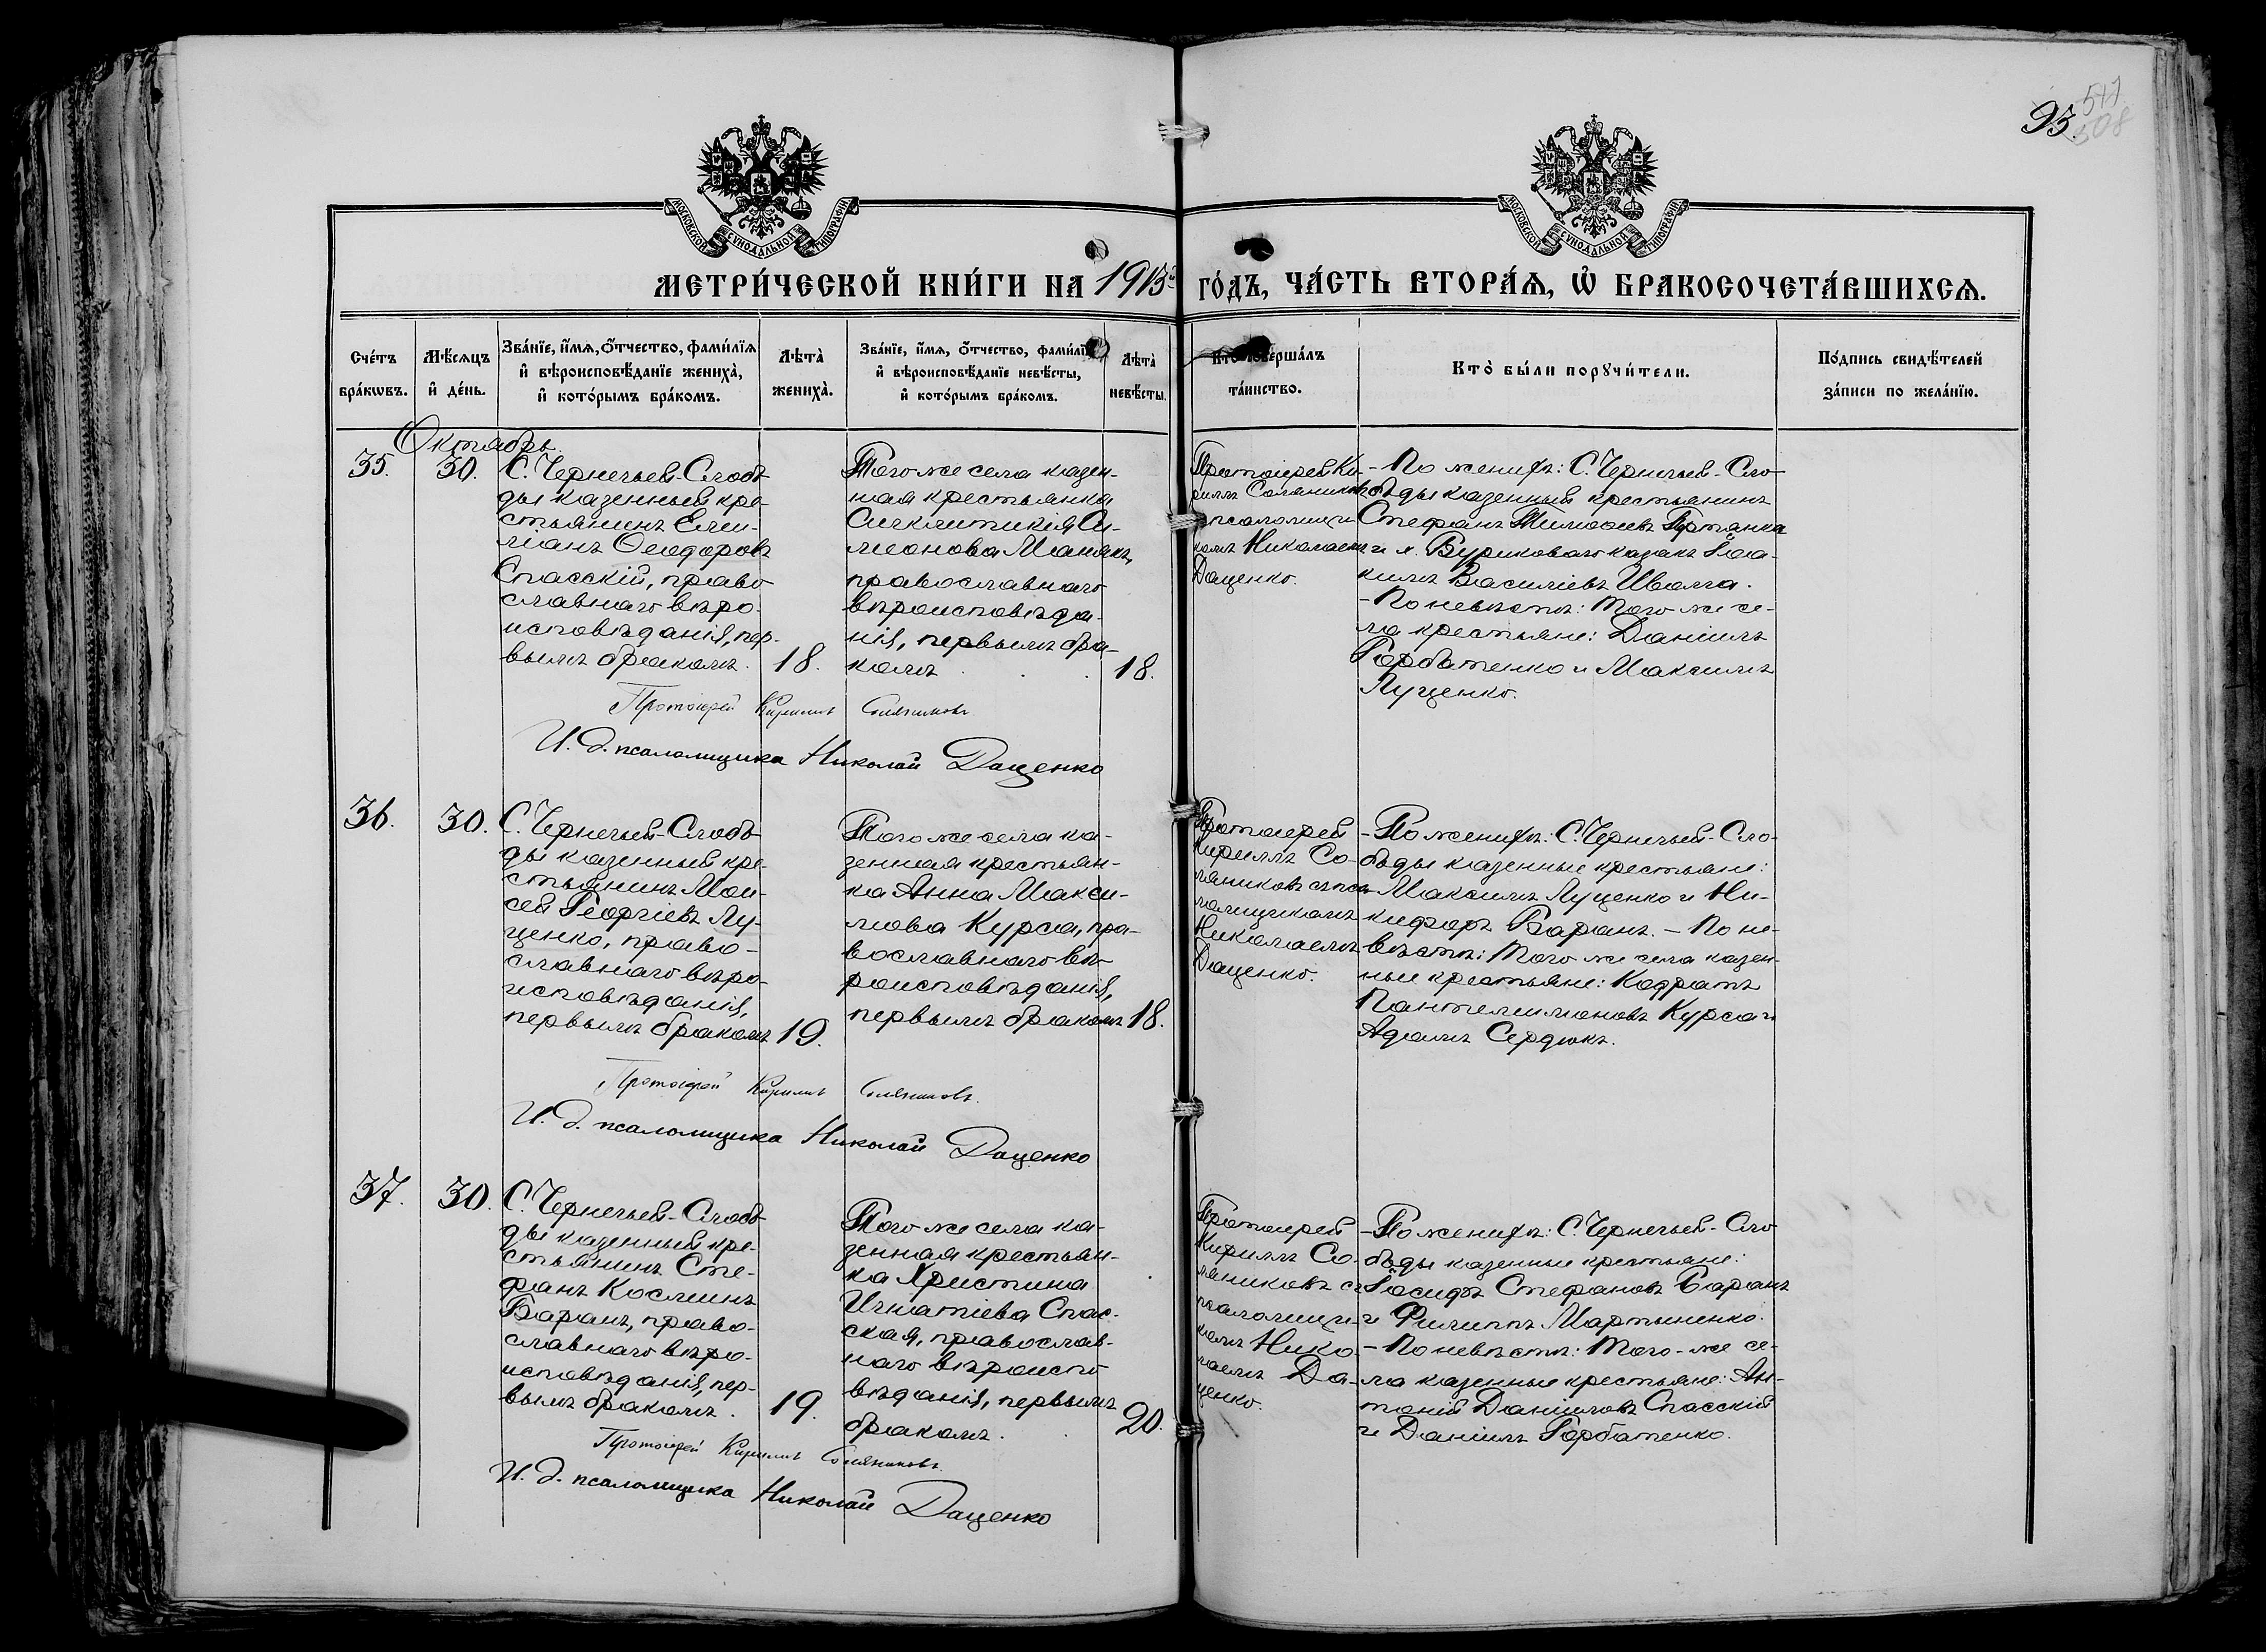 93.
511
508
МОСКОВСКОЙ СУНОДАЛЬНОЙ ТИПОГРАФІИ
МОСКОВСКОЙ СУНОДАЛЬНОЙ ТИПОГРАФІИ
МЕТРИ́ЧЕСКОЙ КНИ́ГИ НА 1913й ГО́ДЪ, ЧА́СТЬ ВТОРА́Я, Ѡ БРАКОСОЧЕТА́ВШИХСЯ.
Сче́тъ
бра́кѡвъ.
Мѣ́сяцъ
и҆ де́нь.
Зва́нїе, и҆́мѧ, ѻ҆́тчество, фами́лїѧ
и҆ вѣроисповѣ́данїе жениха̀,
и҆ кото́рымъ бра́комъ.
Лѣта̀
жениха̀.
Зва́нїе, и҆́мѧ, ѻ҆́тчество, фами́лїѧ
и҆ вѣроисповѣ́данїе невѣ́сты,
и҆ кото́рымъ бра́комъ.
Лѣта̀
невѣ́сты.
Кто̀ соверша́лъ
та́инство.
Кто̀ бы́ли порꙋчи́тели.
По́дпись свидѣ́телей
за́писи по жела́нїю.
Октябрь
35.
30.
С. Чернечьей-Слобо-
ды казенный кре-
стьянинъ Еми-
ліанъ Ѳеодоровъ
Спасскій, право-
славнаго вѣро-
исповѣданія, пер-
вымъ бракомъ.
18.
Того же села казен-
ная крестьянка
Сигклитикія Си-
меонова Манякъ,
православнаго
вѣроисповѣда-
нія, первымъ бра-
комъ
18.
Протоіерей Ки-
риллъ Соляниковъ
съ псаломщи-
комъ Николаемъ
Даценко.
- По женихѣ: С. Чернечьей-Сло-
боды казенный крестьянинъ
Стефанъ Тимоѳеевъ Гуртанка
и х. Вуриковаго казакъ Іоа-
кимъ Василіевъ Ивалга.
- По невѣстѣ: того же се-
ла крестьяне: Даніилъ
Горбатенко и Максимъ
Луценко.
Протоіерей Кириллъ Соляниковъ
И. д. псаломщика Николай Даценко
36.
30.
С. Чернечьей-Слобо-
ды казенный кре-
стьянинъ Мои-
сей Георгіевъ Лу-
ценко, право-
славнаго вѣро-
исповѣданія,
первымъ бракомъ
19.
Того же села ка-
зенная крестьян-
ка Анна Макси-
мова Курса, пра-
вославнаго вѣ-
роисповѣданія,
первымъ бракомъ
18.
Протоіерей
Кириллъ Со-
ляниковъ съ пса-
ломщикомъ
Николаемъ
Даценко.
- По женихѣ: С. Чернечьей-Сло-
боды казенные крестьяне:
Максимъ Луценко и Ни-
кифоръ Баранъ. - По не-
вѣстѣ: того же села казен-
ные крестьяне: Кодратъ
Пантелеимоновъ Курса и
Адамъ Сердюкъ.
Протоіерей Кириллъ Соляниковъ.
И. д. псаломщика Николай Даценко
37.
30.
С. Чернечьей-Слобо-
ды казенный кре-
стьянинъ Сте-
фанъ Косминъ
Баранъ, право-
славнаго вѣро-
исповѣданія, пер-
вымъ бракомъ.
19.
Того же села ка-
зенная крестьян-
ка Христина
Игнатіева Спас-
ская, православ-
наго вѣроиспо-
вѣданія, первымъ
бракомъ.
20.
Протоіерей
Кириллъ Со-
ляниковъ съ
псаломщи-
комъ Нико-
лаемъ Да-
ценко.
- По женихѣ: С. Чернечьей-Сло-
боды казенные крестьяне:
Іосифъ Стефановъ Баранъ
и Филиппъ Мартыненко.
- По невѣстѣ: того-же се-
ла казенные крестьяне: Ан-
тоній Даніиловъ Спасскій
и Даніилъ Горбатенко.
Протоіерей Кириллъ Соляниковъ.
И. д. псаломщика Николай Даценко